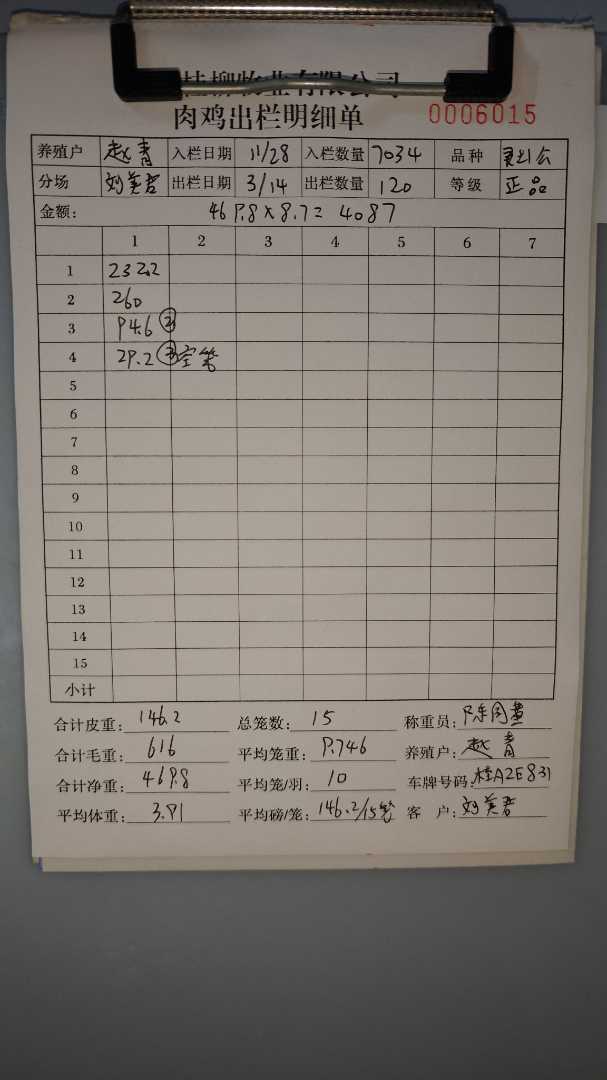 桂柳牧业有限公司
肉鸡出栏明细单 0006015
养殖户 赵青 入栏日期 11/28 入栏数量 7034 品种
分场 刘美君 出栏日期 3/14 出栏数量 120 等级 正品
金额: 469.8×8.7= 4087
1 2 3 4 5 6 7
1 232.2
2 260
3 94.6
4 29.2 ③空笼
5
6
7
8
9
10
11
12
13
14
15
小计
合计皮重: 146.2 总笼数: 15 称重员:
合计毛重: 616 平均笼重: 9.746 养殖户: 赵青
合计净重: 469.8 平均笼/羽: 10 车牌号码: 桂A2E831
平均体重: 3.91 平均磅/笼: 146.2/15笼 客 户: 刘美君